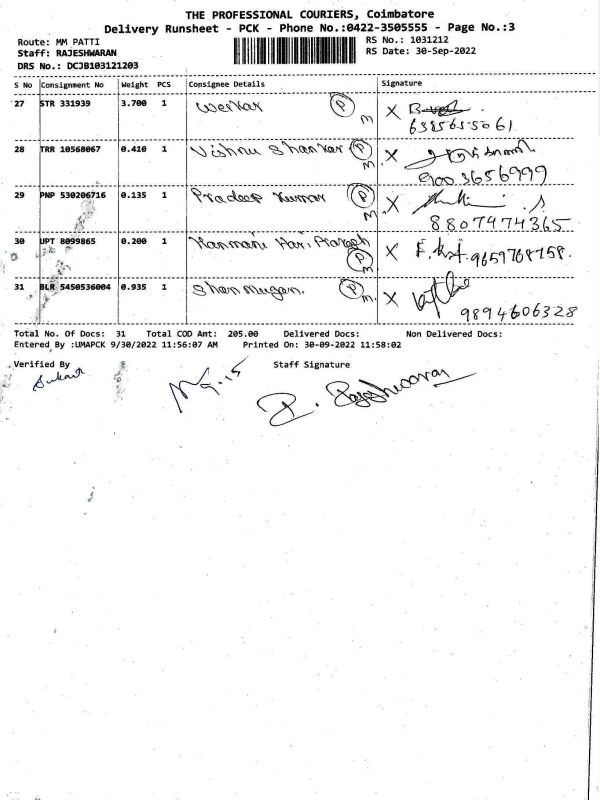 THE PROFESSIONAL COURIERS, Coimbatore
Delivery Runsheet - PCK - Phone No.:0422-3505555 - Page No.:3
Route: MM PATTI RS No.: 1031212
Staff: RAJESHWARAN RS Date: 30-Sep-2022
DRS No.: DCJB103121203
S No Consignment No Weight PCS Consignee Details Signature
27 STR 331939 3.700 1 P M X
6385655061
28 TRR 10568067 0.410 1 Vishnu Shankar P M X
9003656999
29 PNP 530206716 0.135 1 Pradeep Kumar P M X
8807474365
30 UPT 8099865 0.200 1 Kanmani Hari Prakash P M X 9659768158.
31 BLR 5450536004 0.935 1 Shanmugan. P M. X
9894606328
Total No. Of Docs: 31 Total COD Amt: 205.00 Delivered Docs: Non Delivered Docs:
Entered By :UMAPCK 9/30/2022 11:56:07 AM Printed On: 30-09-2022 11:58:02
Verified By Staff Signature
P. Rajeshwaran